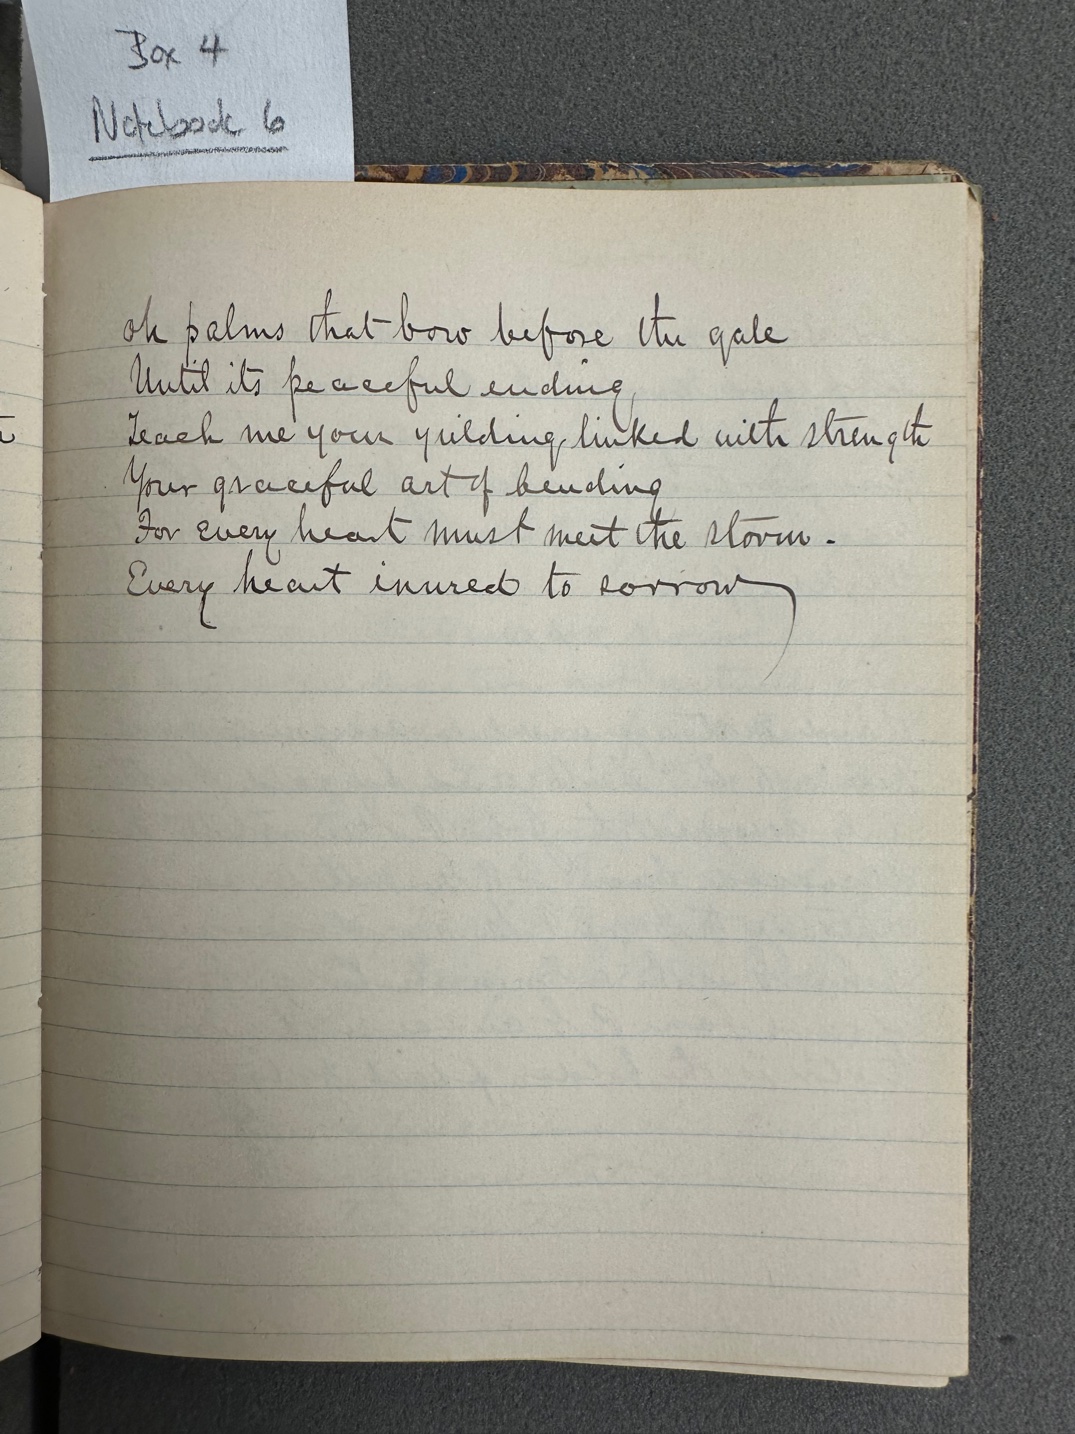 Box 4
Notebook 6
oh palms that bow before the gale
Until its peaceful ending,
Teach me your yeilding, linked with strength
Your graceful art of bending
For every heart must meet the storm.
Every heart inured to sorrow